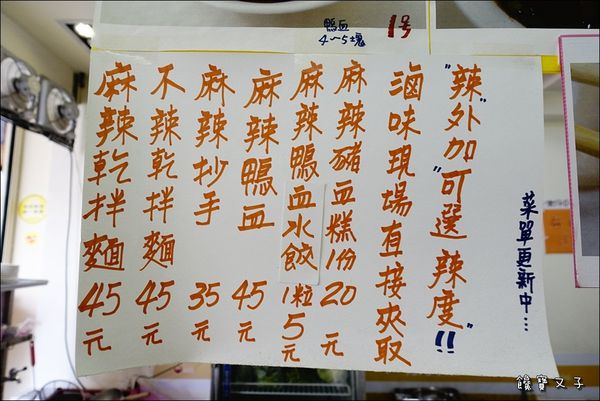 鴨血
4~5塊
1号
"辣"外加"可選 辣度"!!
滷味現場直接夾取
麻辣豬血糕1份20元
麻辣鴨血水餃1粒5元
麻辣鴨血 45元
麻辣抄手 35元
不辣乾拌麵 45元
麻辣乾拌麵 45元
菜單更新中...
饞寶叉子